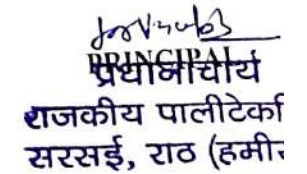 PRINCIPAL
प्रधानाचार्य
राजकीय पालीटेक
सरसई, राठ (हमीर